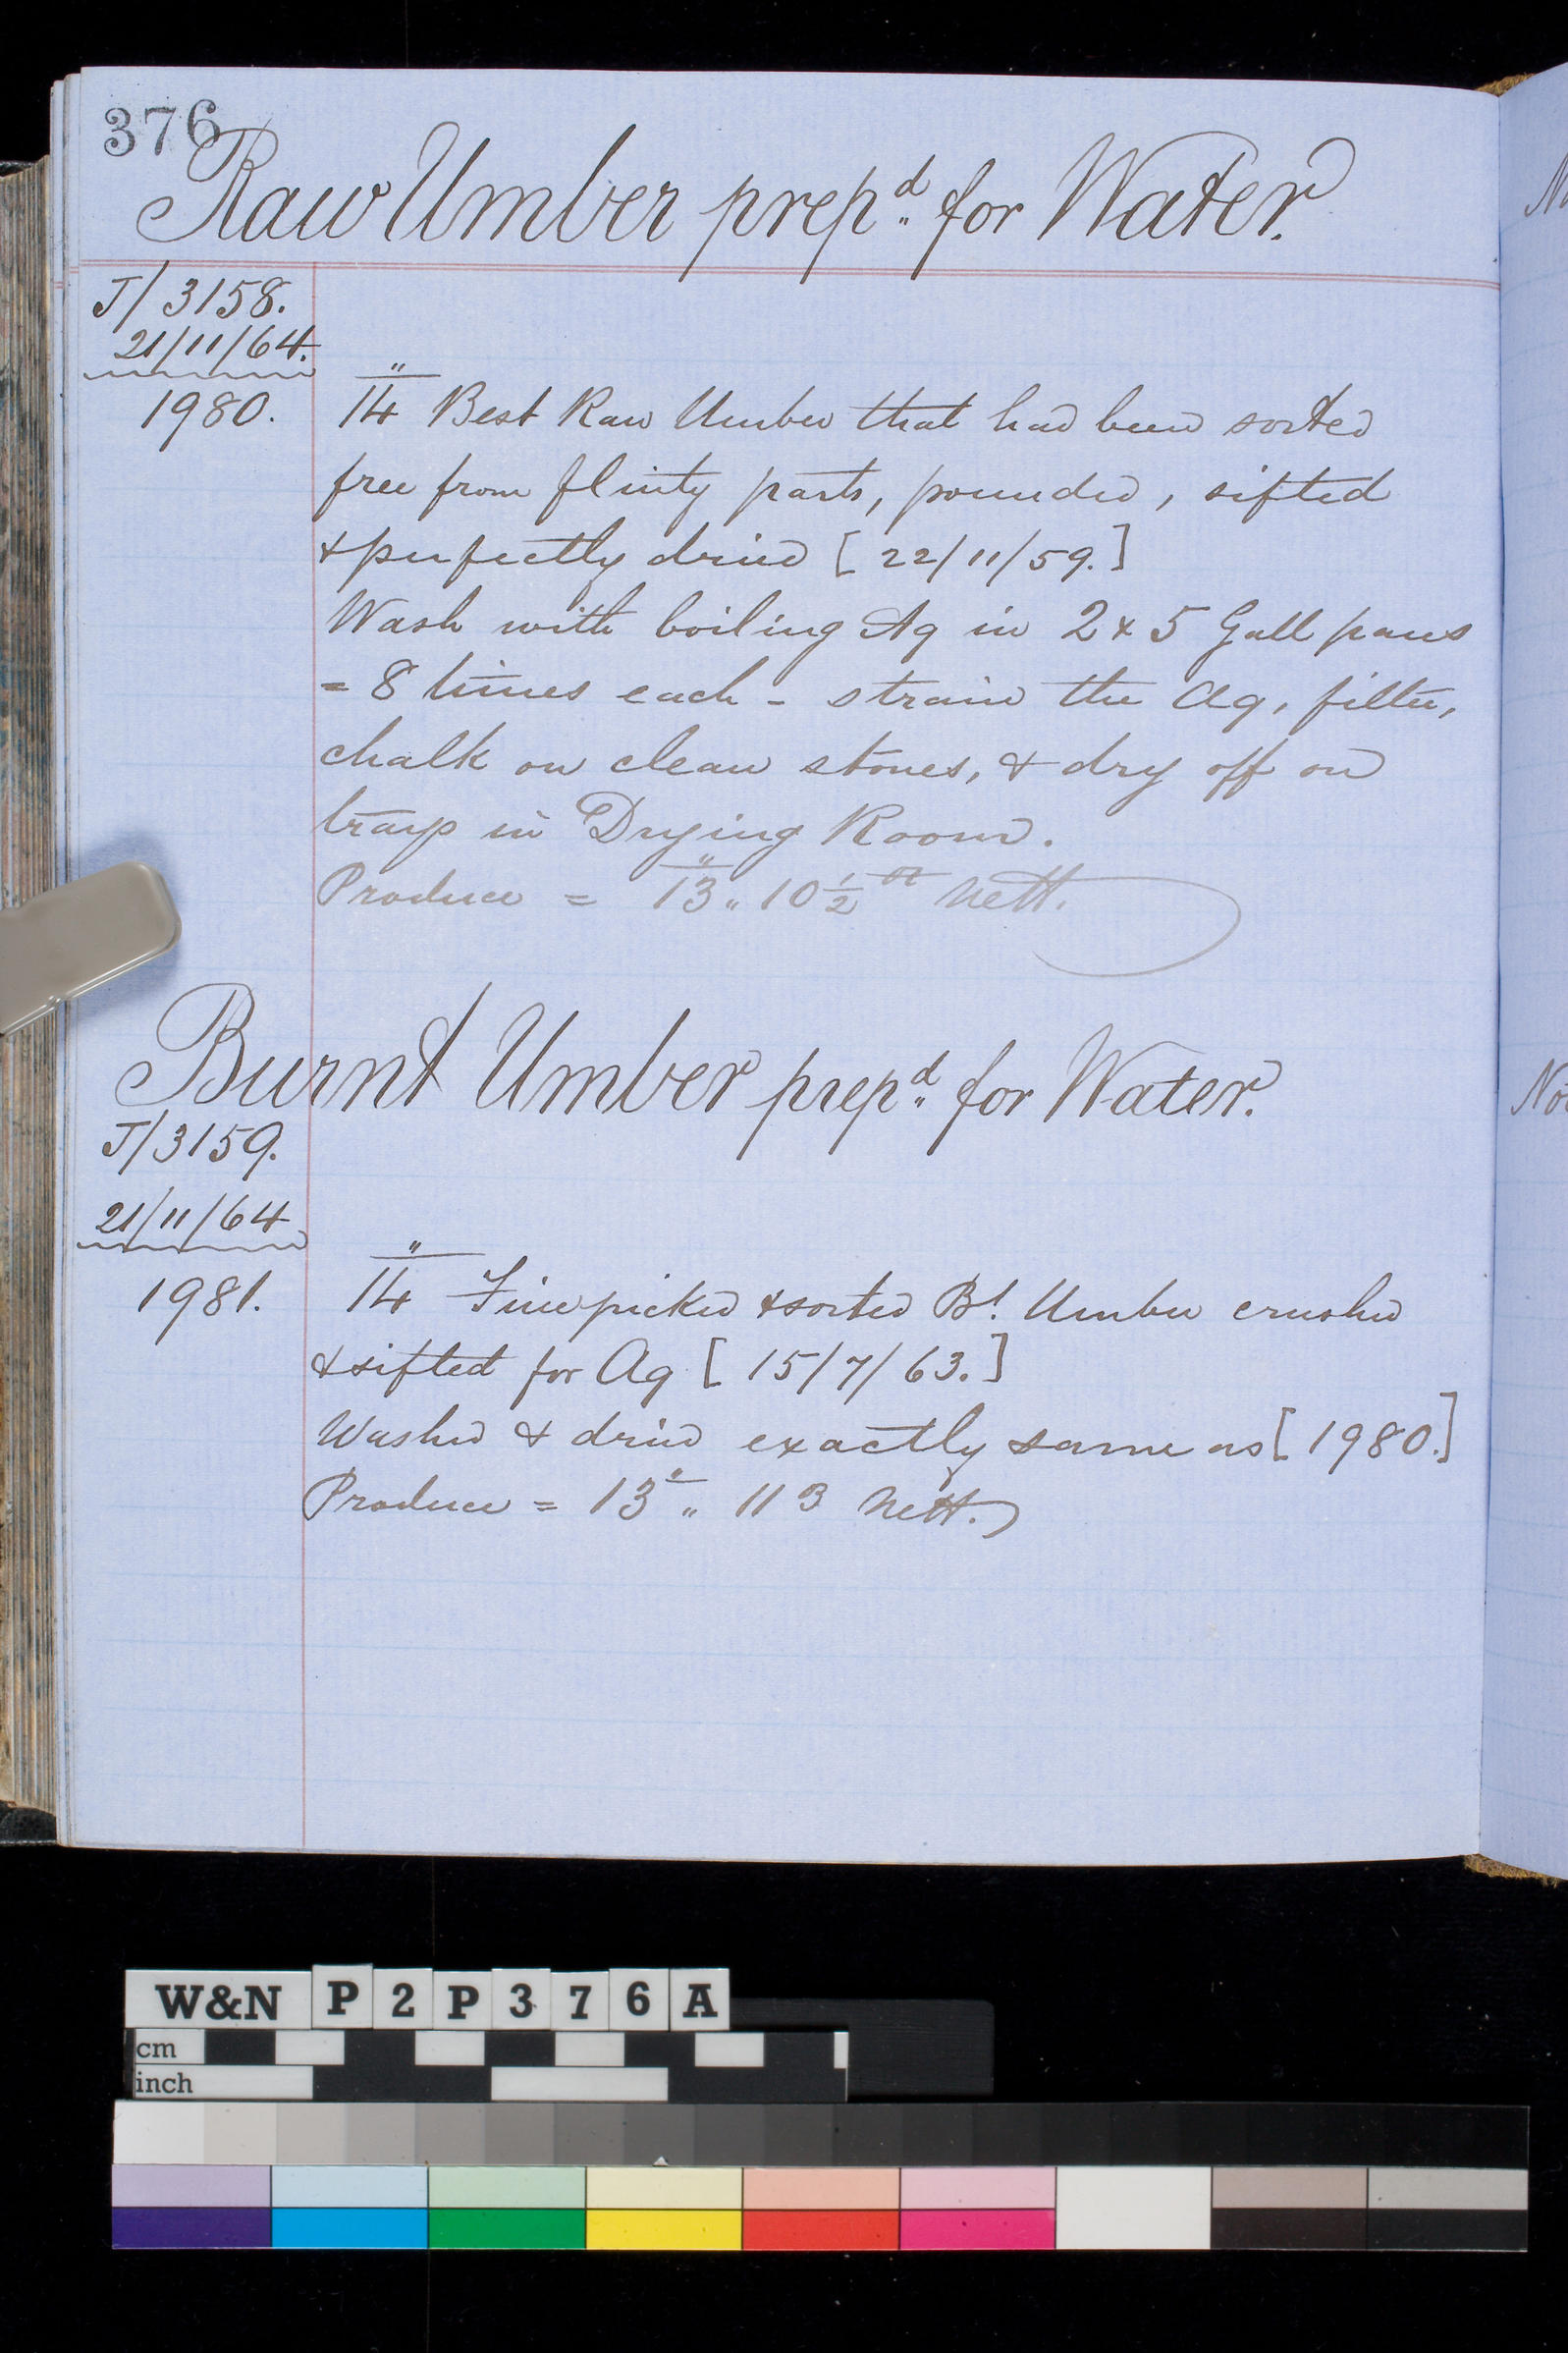 376
Raw Umber prep.d for Water.
J/3158.
21/11/64.
1980.
14 Best Raw Umber that had been sorted
free from flinty parts, pounded, sifted
& perfectly dried [22/11/59.]
Wash with boiling Aq in 2 x 5 Gall pans
= 8 times each - strain the Aq, filter,
chalk on clean stones, & dry off on
trays in Drying Room.
Produce = 13 " 10 1/2 oz nett.
Burnt Umber prep.d for Water.
J/3159.
21/11/64
1981.
14 Fine picked & sorted Bt. Umber crushed
& sifted for Aq [15/7/63.]
Washed & dried exactly same as [1980.]
Produce = 13 " 11 ʒ nett.
No
No
W&N P2P376A
cm
inch